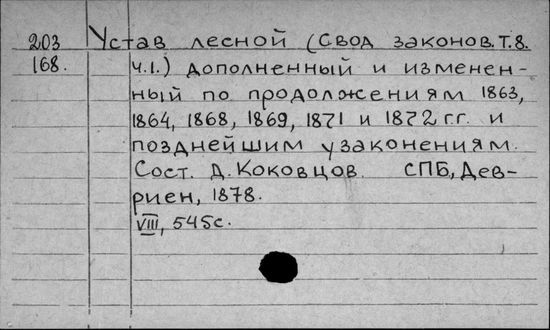 203 Устав лесной (Свод законов. Т. 8.
168. ч. 1.) дополненный и изменен-
ный по продолжениям 1863,
1864, 1868, 1869, 1871 и 1872 г.г. и
позднейшим узаконениям.
Сост. Д. Коковцов. СПБ, Дев-
риен, 1878.
VIII, 545с.